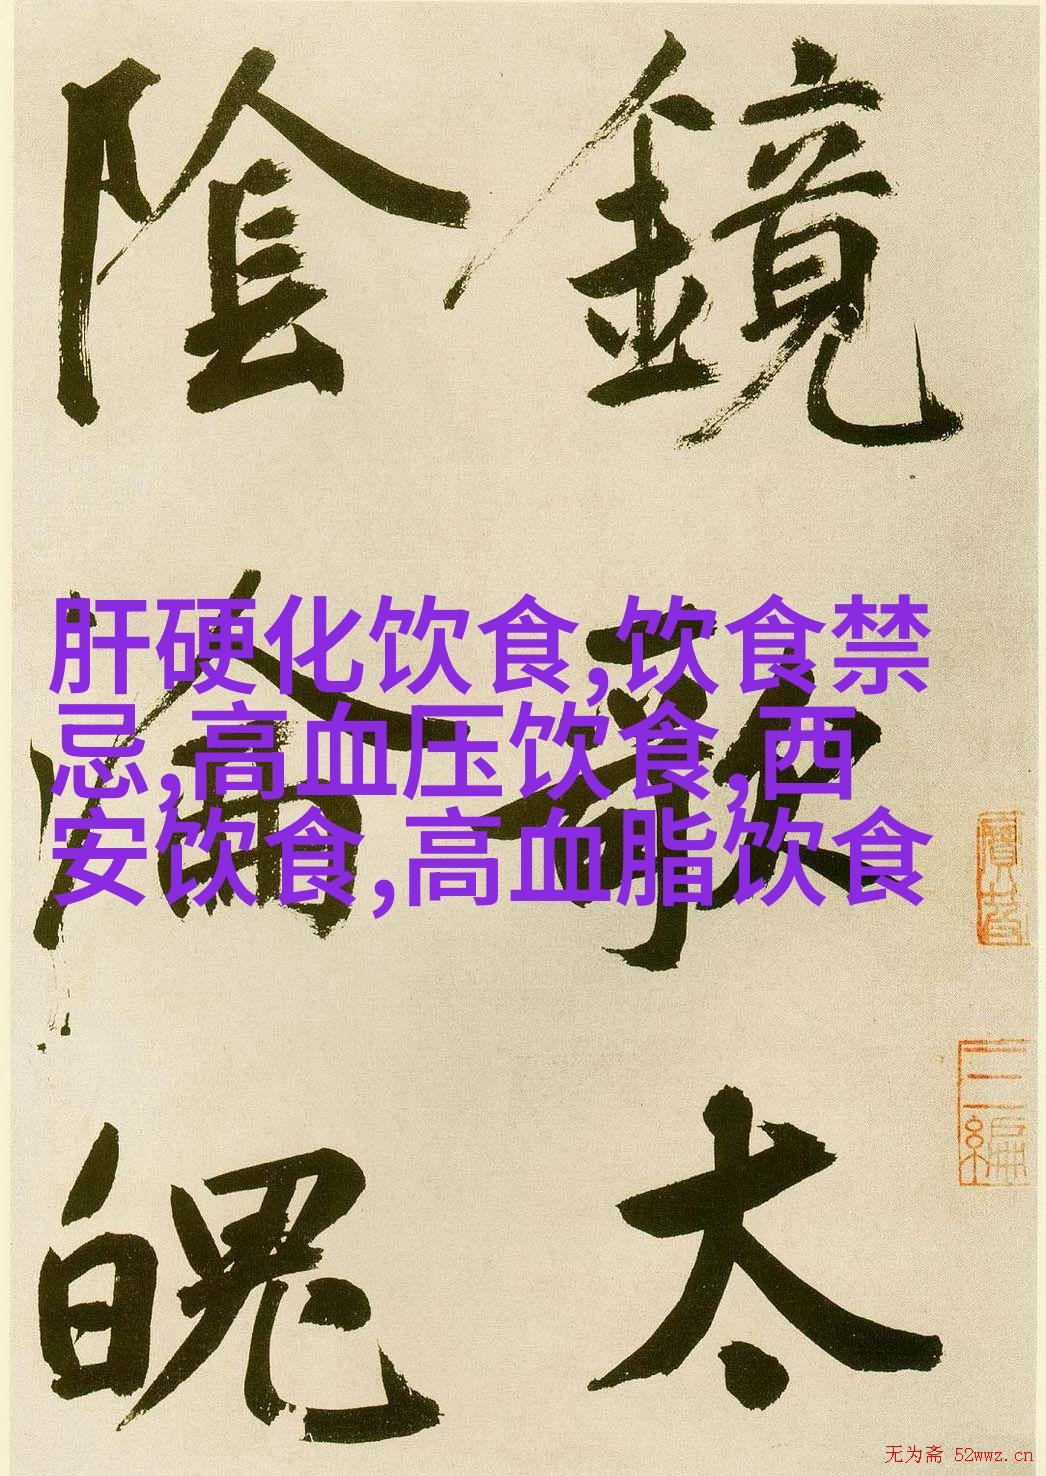 肝硬化饮食,饮食禁
忌,高血压饮食,西
安饮食,高血脂饮食
鏡
太
陰
淪
魄
三編
无为斋 52wwz.cn